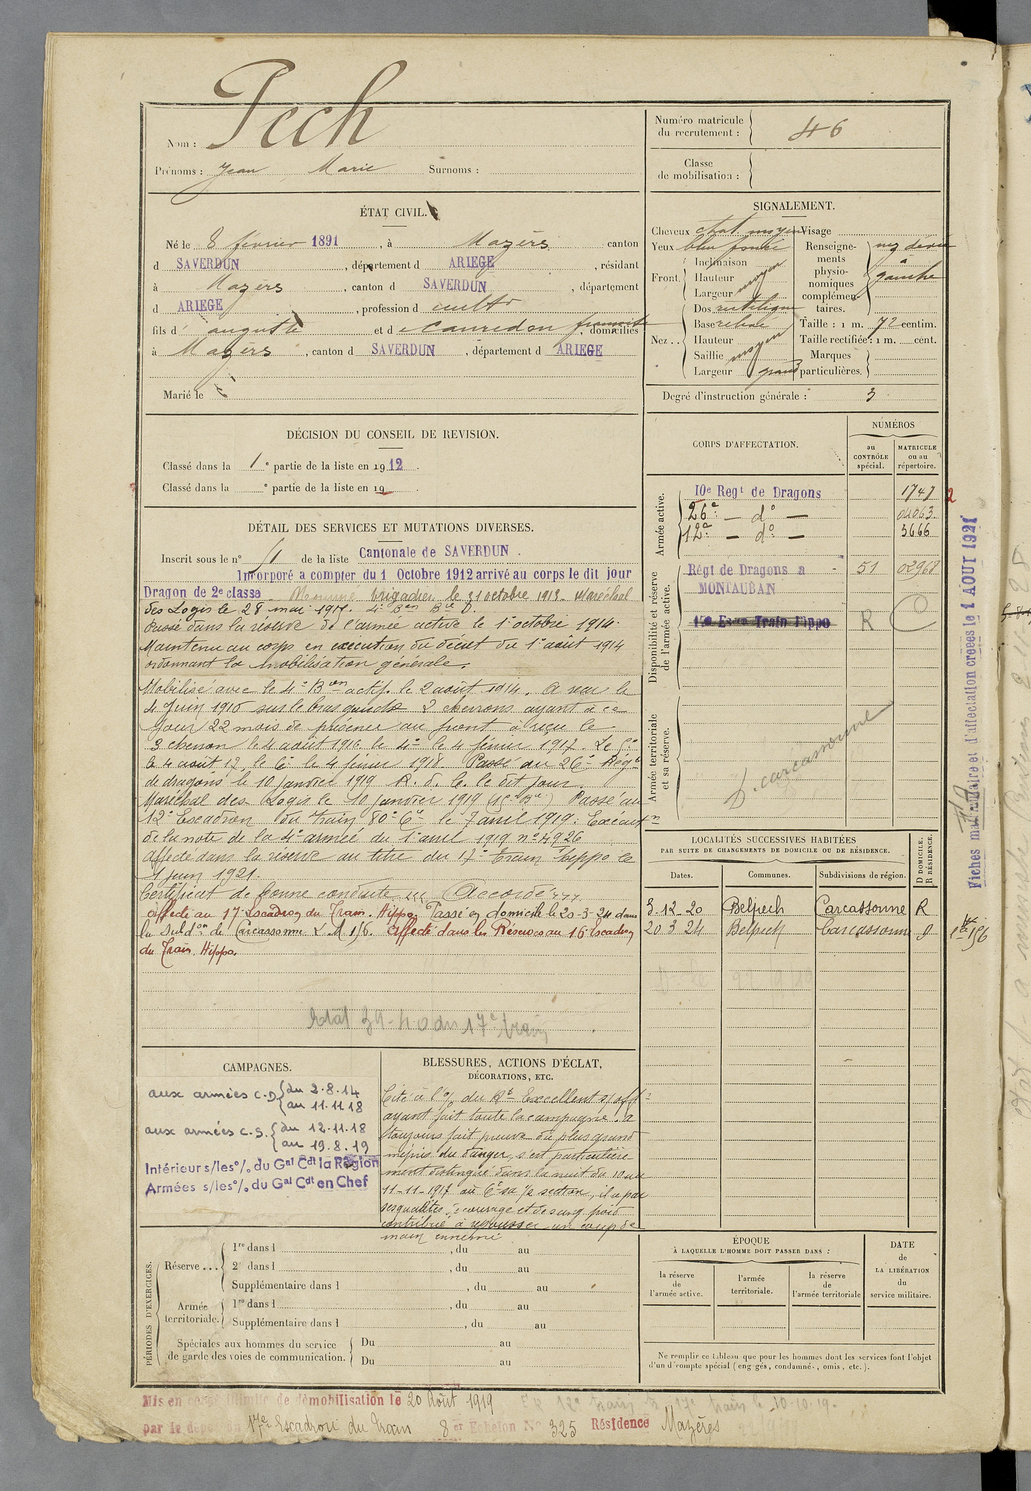 Nom : Pech
Prénoms : Jean Marie Surnoms :
Numéro matricule du recrutement : 46
Classe de mobilisation :
ÉTAT CIVIL.
Né le 8 février 1891, à Mazères canton
d SAVERDUN, département d ARIEGE, résidant
à Mazères, canton d SAVERDUN, département
d ARIEGE, profession d cultr
fils d' auguste et de domiciliés
à Mazères, canton d SAVERDUN, département d ARIEGE
Marié le
SIGNALEMENT.
Cheveux chat moyen Visage
Yeux bleu foncé
Front. Inclinaison
Hauteur moyen
Largeur
Nez .. Dos rectiligne
Base
Hauteur
Saillie moyen
Largeur grand
Renseignements physionomiques complémentaires. nez dévié à gauche
Taille : 1 m. 72 centim.
Taille rectifiée : 1 m. cent.
Marques particulières.
Degré d'instruction générale : 3
DÉCISION DU CONSEIL DE REVISION.
Classé dans la 1e partie de la liste en 1912.
Classé dans la e partie de la liste en 19
DÉTAIL DES SERVICES ET MUTATIONS DIVERSES.
Inscrit sous le n° de la liste Cantonale de SAVERDUN.
Incorporé a compter du 1 Octobre 1912 arrivé au corps le dit jour
Dragon de 2e classe Nommé brigadier le 31 octobre 1913. Maréchal
des Logis le 28 mai 1917.
Passé dans la réserve de l'armée active le 1er octobre 1914.
Maintenu au corps en exécution du décret du 1er août 1914
ordonnant la mobilisation générale.
Mobilisé avec le 4e Bon actif le 2 août 1914. A reçu le
4 juin 1916 sur le bras gauche 2 chevrons ayant à ce
jour 22 mois de présence au front à reçu le
3 chevron le 4 août 1916 le 4e le 4 février 1917. Le 5e
le 4 août 17, le 6e le 4 février 1918. Passé au 26e Régt
de dragons le 10 janvier 1919 R. d. C. le dit jour.
Maréchal des Logis le 10 janvier 1919 Passé au
12e Escadron du train 80e Cie le 7 avril 1919. Exécution
de la note de la 4e armée du 1er avril 1919 n° 4926
Affecté dans la réserve au titre du 17e Train hippo le
1 juin 1921.
Certificat de bonne conduite Accordé
Affecté au 17e Escadron du Train. Hippo. Passé en domicile le 20-3-24 dans
la Subdon de Carcassonne L M 156. Affecté dans les Réserves au 16 Escadron
du Train Hippo.
Etat 39-40 du 17e train
CORPS D'AFFECTATION.
NUMÉROS
au CONTRÔLE spécial.
MATRICULE ou au répertoire.
Armée active.
10e Regt de Dragons 1747
26e — do — 04063
12e — do — 3666
Disponibilité et réserve de l'armée active.
Régt de Dragons a MONTAUBAN 51 02968
Train Hippo R C
Armée territoriale et sa réserve.
D. Carcassonne
LOCALITÉS SUCCESSIVES HABITÉES
PAR SUITE DE CHANGEMENTS DE DOMICILE OU DE RÉSIDENCE.
Dates. Communes. Subdivisions de région. D DOMICILE. R RÉSIDENCE.
3-12-20 Belpech Carcassonne R
20 3 24 Belpech Carcassonne D
Fiches matriculaire et d'affectation créées le 1 AOUT 1921
CAMPAGNES.
aux armées C.D. du 2.8.14
au 11.11.18
aux armées C.S. du 12.11.18
au 19.8.19
Intérieur s/les o/. du Gal Cdt la Région
Armées s/les o/. du Gal Cdt en Chef
BLESSURES, ACTIONS D'ÉCLAT,
DÉCORATIONS, ETC.
Cité à l'o/ du Rt Excellent s/off
ayant fait toute la campagne. a
toujours fait preuve du plus grand
mépris du danger, s'est particulière
ment distingué dans la nuit du 10 au
11-11-1917 où il a par
ses qualités de courage et de sang froid
contribué à repousser un coup de
main ennemi
PÉRIODES D'EXERCICES.
Réserve ... 1re dans l , du au
2e dans l , du au
Supplémentaire dans l , du au
Armée territoriale. 1re dans l , du au
Supplémentaire dans l , du au
Spéciales aux hommes du service de garde des voies de communication. Du au
Du au
ÉPOQUE
À LAQUELLE L'HOMME DOIT PASSER DANS :
la réserve de l'armée active.
l'armée territoriale.
la réserve de l'armée territoriale
DATE de LA LIBÉRATION du service militaire.
Ne remplir ce tableau que pour les hommes dont les services font l'objet
d'un décompte spécial (engagés, condamnés, omis, etc.).
Mis en congé illimité de démobilisation le 20 Août 1919
par le dépôt du 17e Escadron du train 8er Echelon N° 325 Résidence Mazères